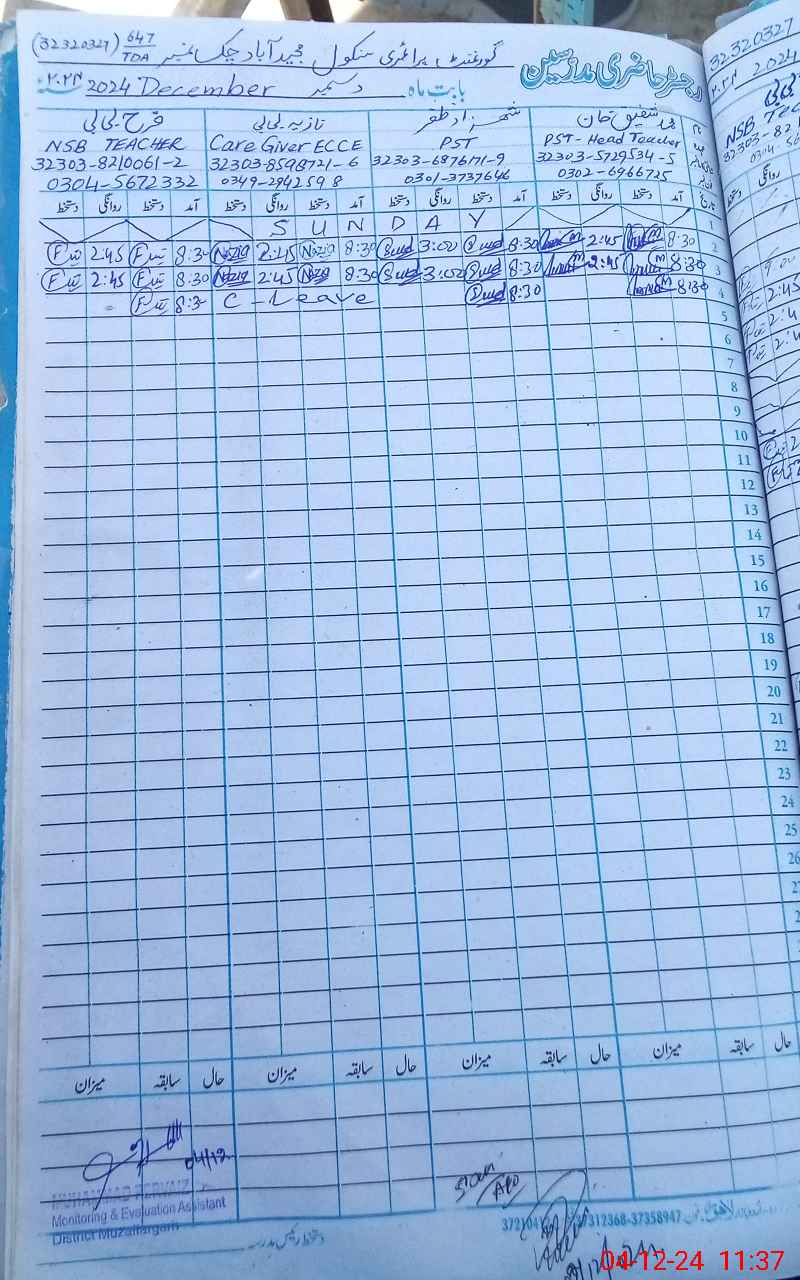 رجسٹر حاضری مدرسین
گورنمنٹ پرائمری سکول مجید آباد چک نمبر 647/TDA (32320327)
بابت ماہ دسمبر December 2024 ۲۰۲۴
محمد شفیق خان شہزاد ظفر نازیہ بی بی فرح بی بی
NSB TEACHER Care Giver ECCE PST PST-Head Teacher
32303-8210061-2 32303-8598721-6 32303-6876171-9 32303-5729534-5
0304-5672332 0349-2942598 0301-3737646 0302-6966725
آمد دستخط روانگی دستخط آمد دستخط روانگی دستخط آمد دستخط روانگی دستخط آمد دستخط روانگی دستخط
SUNDAY 1
2:45 8:30 2:45 Nazia 8:30 3:00 8:30 2:45 8:30 2
2:45 8:30 Nazia 2:45 Nazia 8:30 3:00 8:30 2:45 8:30 3
8:30 C-Leave 8:30 8:30 4
5
6
7
8
9
10
11
12
13
14
15
16
17
18
19
20
21
22
23
24
25
26
حال سابقہ میزان حال سابقہ میزان حال سابقہ میزان حال سابقہ میزان
04/12
MUHAMMAD PERVAIZ
Monitoring & Evaluation Assistant
District Muzaffargarh
دستخط رئیس مدرسہ
37312368-37358947
04-12-24 11:37
32320327
2024
NSB